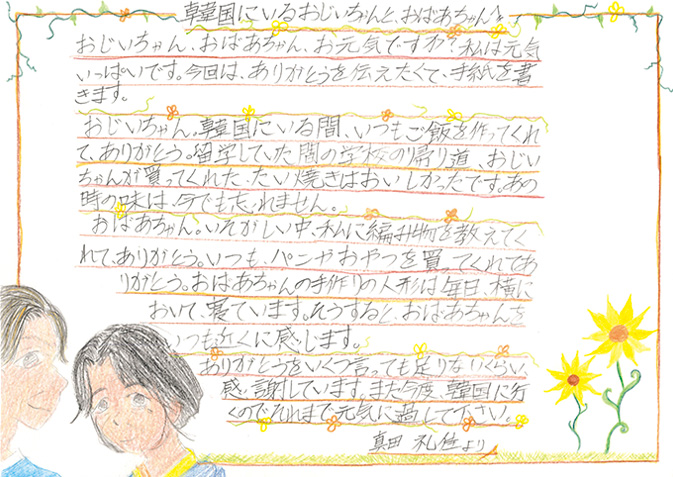 韓国にいるおじいちゃんと、おばあちゃんへ
おじいちゃん、おばあちゃん、お元気ですか?私は元気
いっぱいです。今回は、ありがとうを伝えたくて、手紙を書
きます。
おじいちゃん。韓国にいる間、いつもご飯を作ってくれ
て、ありがとう。留学していた間の学校の帰り道、おじい
ちゃんが買ってくれた、たい焼きはおいしかったです。あの
時の味は、今でも忘れません。
おばあちゃん。いそがしい中、私に編み物を教えてく
れて、ありがとう。いつも、パンやおやつを買ってくれてあ
りがとう。おばあちゃんの手作りの人形は毎日、横に
おいて、寝ています。そうすると、おばあちゃんを
いつも近くに感じます。
ありがとうをいくつ言っても足りないくらい、
感謝しています。また今度、韓国に行
くのでそれまで元気に過して下さい。
真田 礼 より